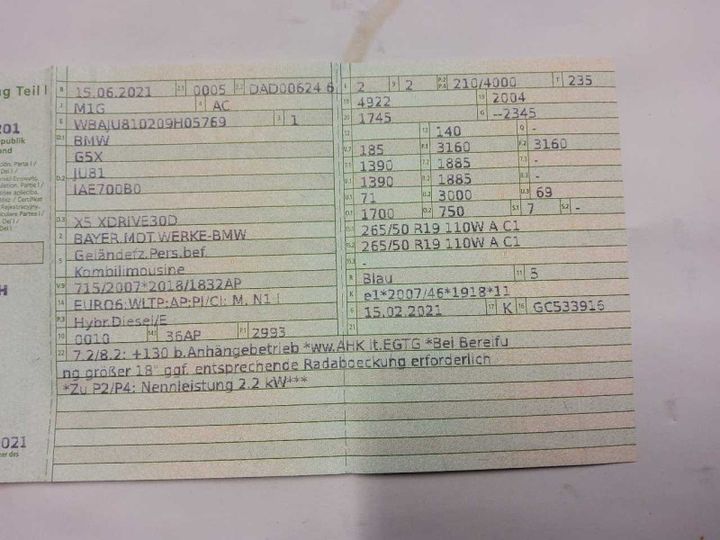 ng Teil I
201
publik
nd
021
ner des
B 15.06.2021 2.1 0005 2.2 DAD00624 6
J M1G 4 AC
E WBAJU810209H05769 3 1
D.1 BMW
G5X
D.2 JU81
IAE700B0
D.3 X5 XDRIVE30D
2 BAYER.MOT.WERKE-BMW
5 Geländefz.Pers.bef.
Kombilimousine
V.9 715/2007*2018/1832AP
14 EURO6;WLTP;AP;PI/CI; M, N1 I
P.3 Hybr.Diesel/E
10 0010 14.1 36AP P.1 2993
L 2 9 2 P.2 P.4 210/4000 T 235
18 4922 19 2004
20 1745 G --2345
12 - 13 140 Q -
V.7 185 F.1 3160 F.2 3160
7.1 1390 7.2 1885 7.3 -
8.1 1390 8.2 1885 8.3 -
U.1 71 U.2 3000 U.3 69
O.1 1700 O.2 750 S.1 7 S.2 -
15.1 265/50 R19 110W A C1
15.2 265/50 R19 110W A C1
15.3 -
R Blau 11 5
K e1*2007/46*1918*11
6 15.02.2021 17 K 16 GC533916
21
22 7.2/8.2: +130 b.Anhängebetrieb *ww.AHK lt.EGTG *Bei Bereifu
ng größer 18" ggf. entsprechende Radabdeckung erforderlich
*Zu P2/P4: Nennleistung 2.2 kW***